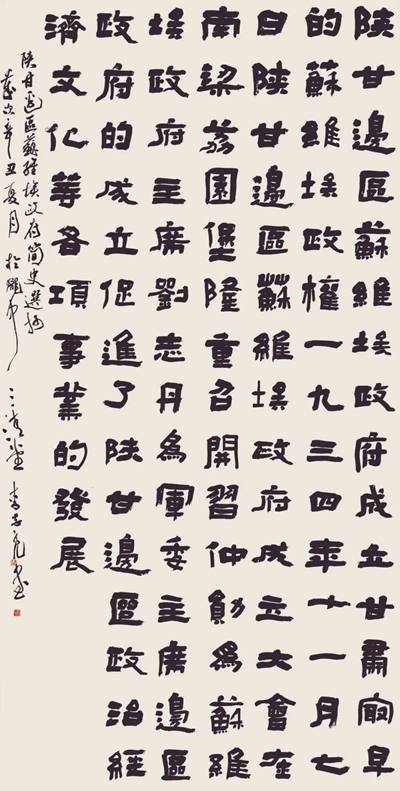 陝甘邊區蘇維埃政府成立甘肅最早
的蘇維埃政權一九三四年十一月七
日陝甘邊區蘇維埃政府成立大會在
南梁荔園堡隆重召開習仲勛為蘇維
埃政府主席劉志丹為軍委主席邊區
政府的成立促進了陝甘邊區政治經
濟文化等各項事業的發展
陝甘邊區蘇維埃政府简史選抄
歲次辛丑夏月於